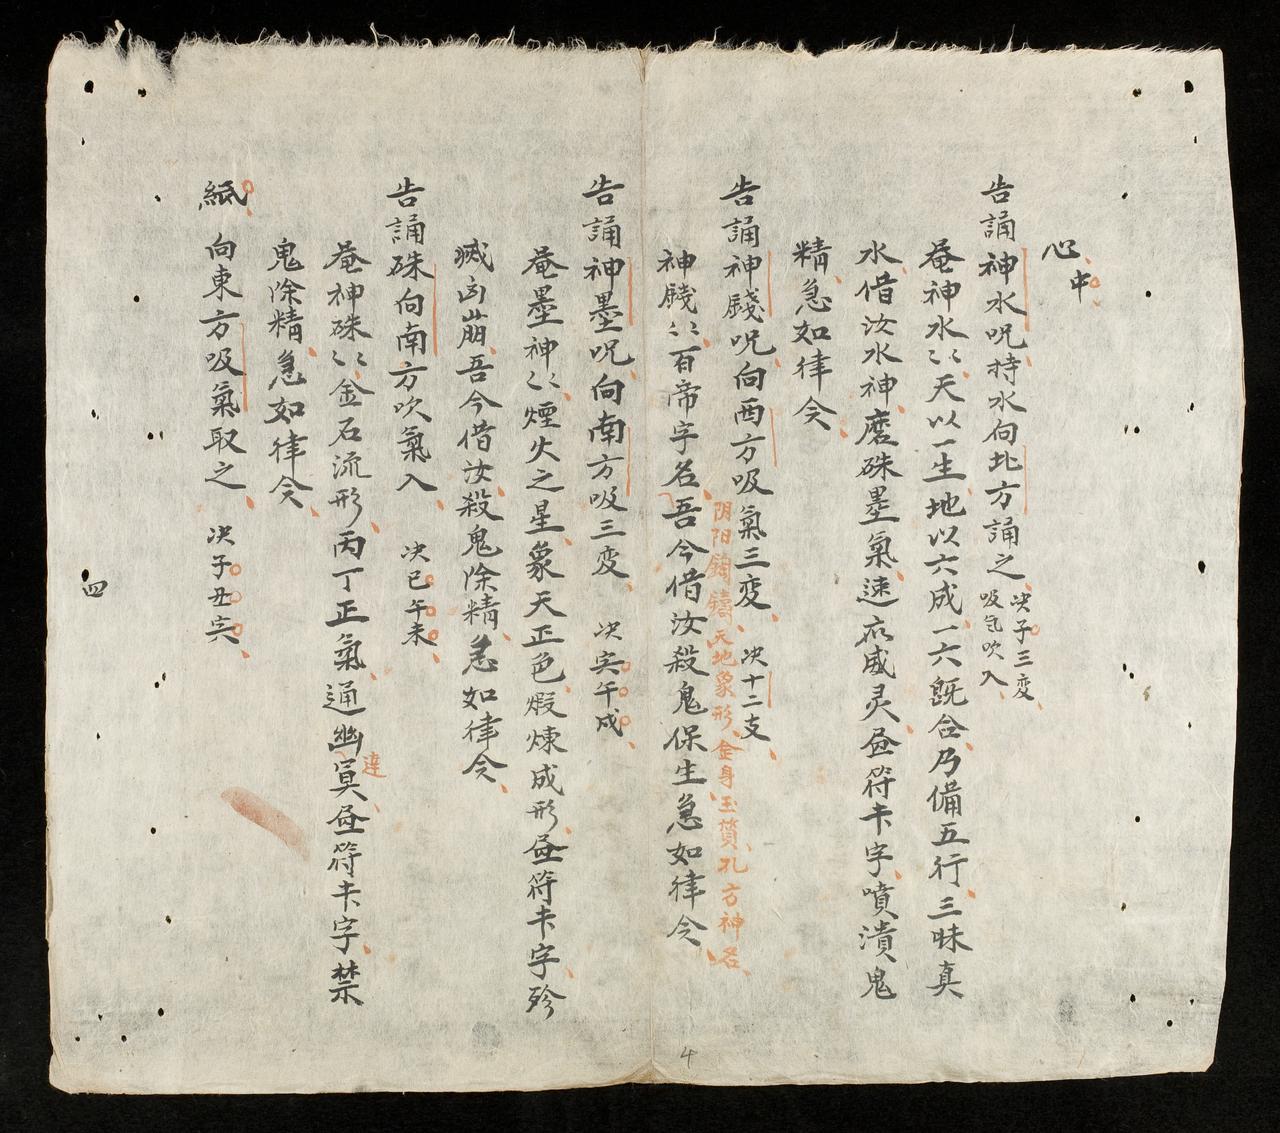 心中
告誦神水呪持水向北方誦之 决子三変
吸气吹入
菴神水〻天以一生地以六成一六既合乃備五行三昧真
水借汝水神磨硃墨氣速応威灵𦘕符卡字噴潰鬼
精急如律令
告誦神餞呪向酉方吸氣三変 决十二支
阴阳鑄天地象形金身玉質孔方神名
神餞〻百帝字名吾今借汝殺鬼保生急如律令
告誦神墨呪向南方吸三変 决寅午戍
菴墨神〻煙火之星象天正色煅煉成形𦘕符卡字殄
滅凶崩吾今借汝殺鬼除精急如律令
告誦硃向南方吹氣入 决巳午未
菴神硃〻金石流形丙丁正氣通幽冥𦘕符卡字禁
達
鬼除精急如律令
紙向東方吸氣取之 决子丑寅
四
4